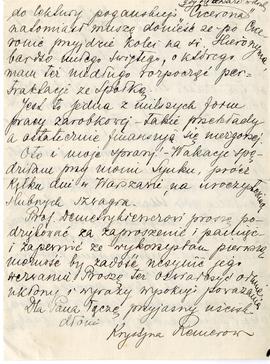 do lektury pogańskiej. Cicerona
natomiast muszę donieść że po Cice
ronie przyjdzie kolej na św. Hieronyma
bardzo miłego świętego, o którego
mam też niedługo rozpocząć per-
traktacje ze Spółką.
Jest to jedna z milszych form
pracy zarobkowej - takie przekłady
a ostatecznie finansują się niezgorzej
Oto i moje sprawy. Wakacje spę-
dziłam przy moim Synku, prócz
kilku dni w Warszawie na uroczystościach
ślubnych szwagra.
Prof. proszę po-
dziękować za zaproszenie i pamięć
i zapewnić że wykorzystam pierwszą
możność by zadość uczynić jego
wezwaniu. Proszę też oświadczyć
ukłony i wyrazy wysokiego poważania
Dla Pana łączę przyjazny uścisk
dłoni
Krystyna